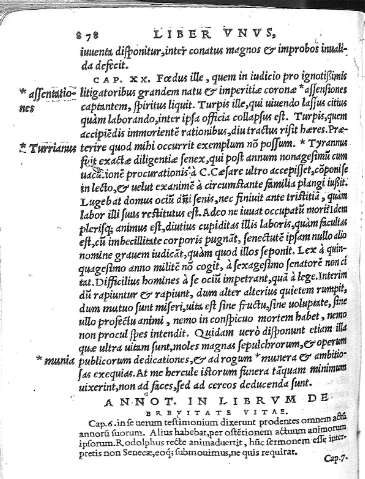 878 LIBER VNVS,
iuuenta disponitur, inter conatus magnos & improbos inuali-
da defecit.
CAP. XX. Fœdus ille, quem in iudicio pro ignotissimis
* assentatio- litigatoribus grandem natu & imperitiæ coronæ * assensiones
nes captantem, spiritus liquit. Turpis ille, qui uiuendo lassus citius
quàm laborando, inter ipsa officia collapsus est. Turpis, quem
accipiēdis immorientē rationibus, diu tractus risit hæres. Præ-
* Turrianus terire quod mihi occurrit exemplum nō possum. * Tyrannus
fuit exactæ diligentiæ senex, qui post annum nonagesimū cum
uacationē procurationis à C. Cæsare ultro accepisset, cōponi se
in lecto, & uelut exanimē à circumstante familia plangi iußit.
Lugebat domus ociū dñi senis, nec finiuit ante tristitiā, quàm
labor illi suus restitutus est. Adeo ne iuuat occupatū mori? Idem
plerisq; animus est, diutius cupiditas illis laboris, quàm facultas
est, cū imbecillitate corporis pugnāt, senectutē ipsam nullo alio
nomine grauem iudicāt, quàm quod illos seponit. Lex à quin-
quagesimo anno militē nō cogit, à sexagesimo senatorē non ci
tat. Difficilius homines à se ociū impetrant, quà à lege. Interim
dū rapiuntur & rapiunt, dum alter alterius quietem rumpit,
dum mutuo sunt miseri, uita est sine fructu, sine uoluptate, sine
ullo profectu animi, nemo in conspicuo mortem habet, nemo
non procul spes intendit. Quidam uerò disponunt etiam illa
quæ ultra uitam sunt, moles magnas sepulchrorum, & operum
* munia publicorum dedicationes, & ad rogum * munera & ambitio-
sas exequias. At me hercule istorum funera tāquam minimum
uixerint, non ad faces, sed ad cereos ducenda sunt.
ANNOT. IN LIBRVM DE
BREVITATE VITAE.
Cap. 6. in se uerum testimonium dixerunt prodentes omnem actū
annorū suorum. Altus habebat, per ostētionem actuum animorum
ipsorum. Rodolphus recte animaduertit, hūc sermonem esse inter-
pretis non Senecæ, eoq; submouimus, ne quis requirat.
Cap. 7.